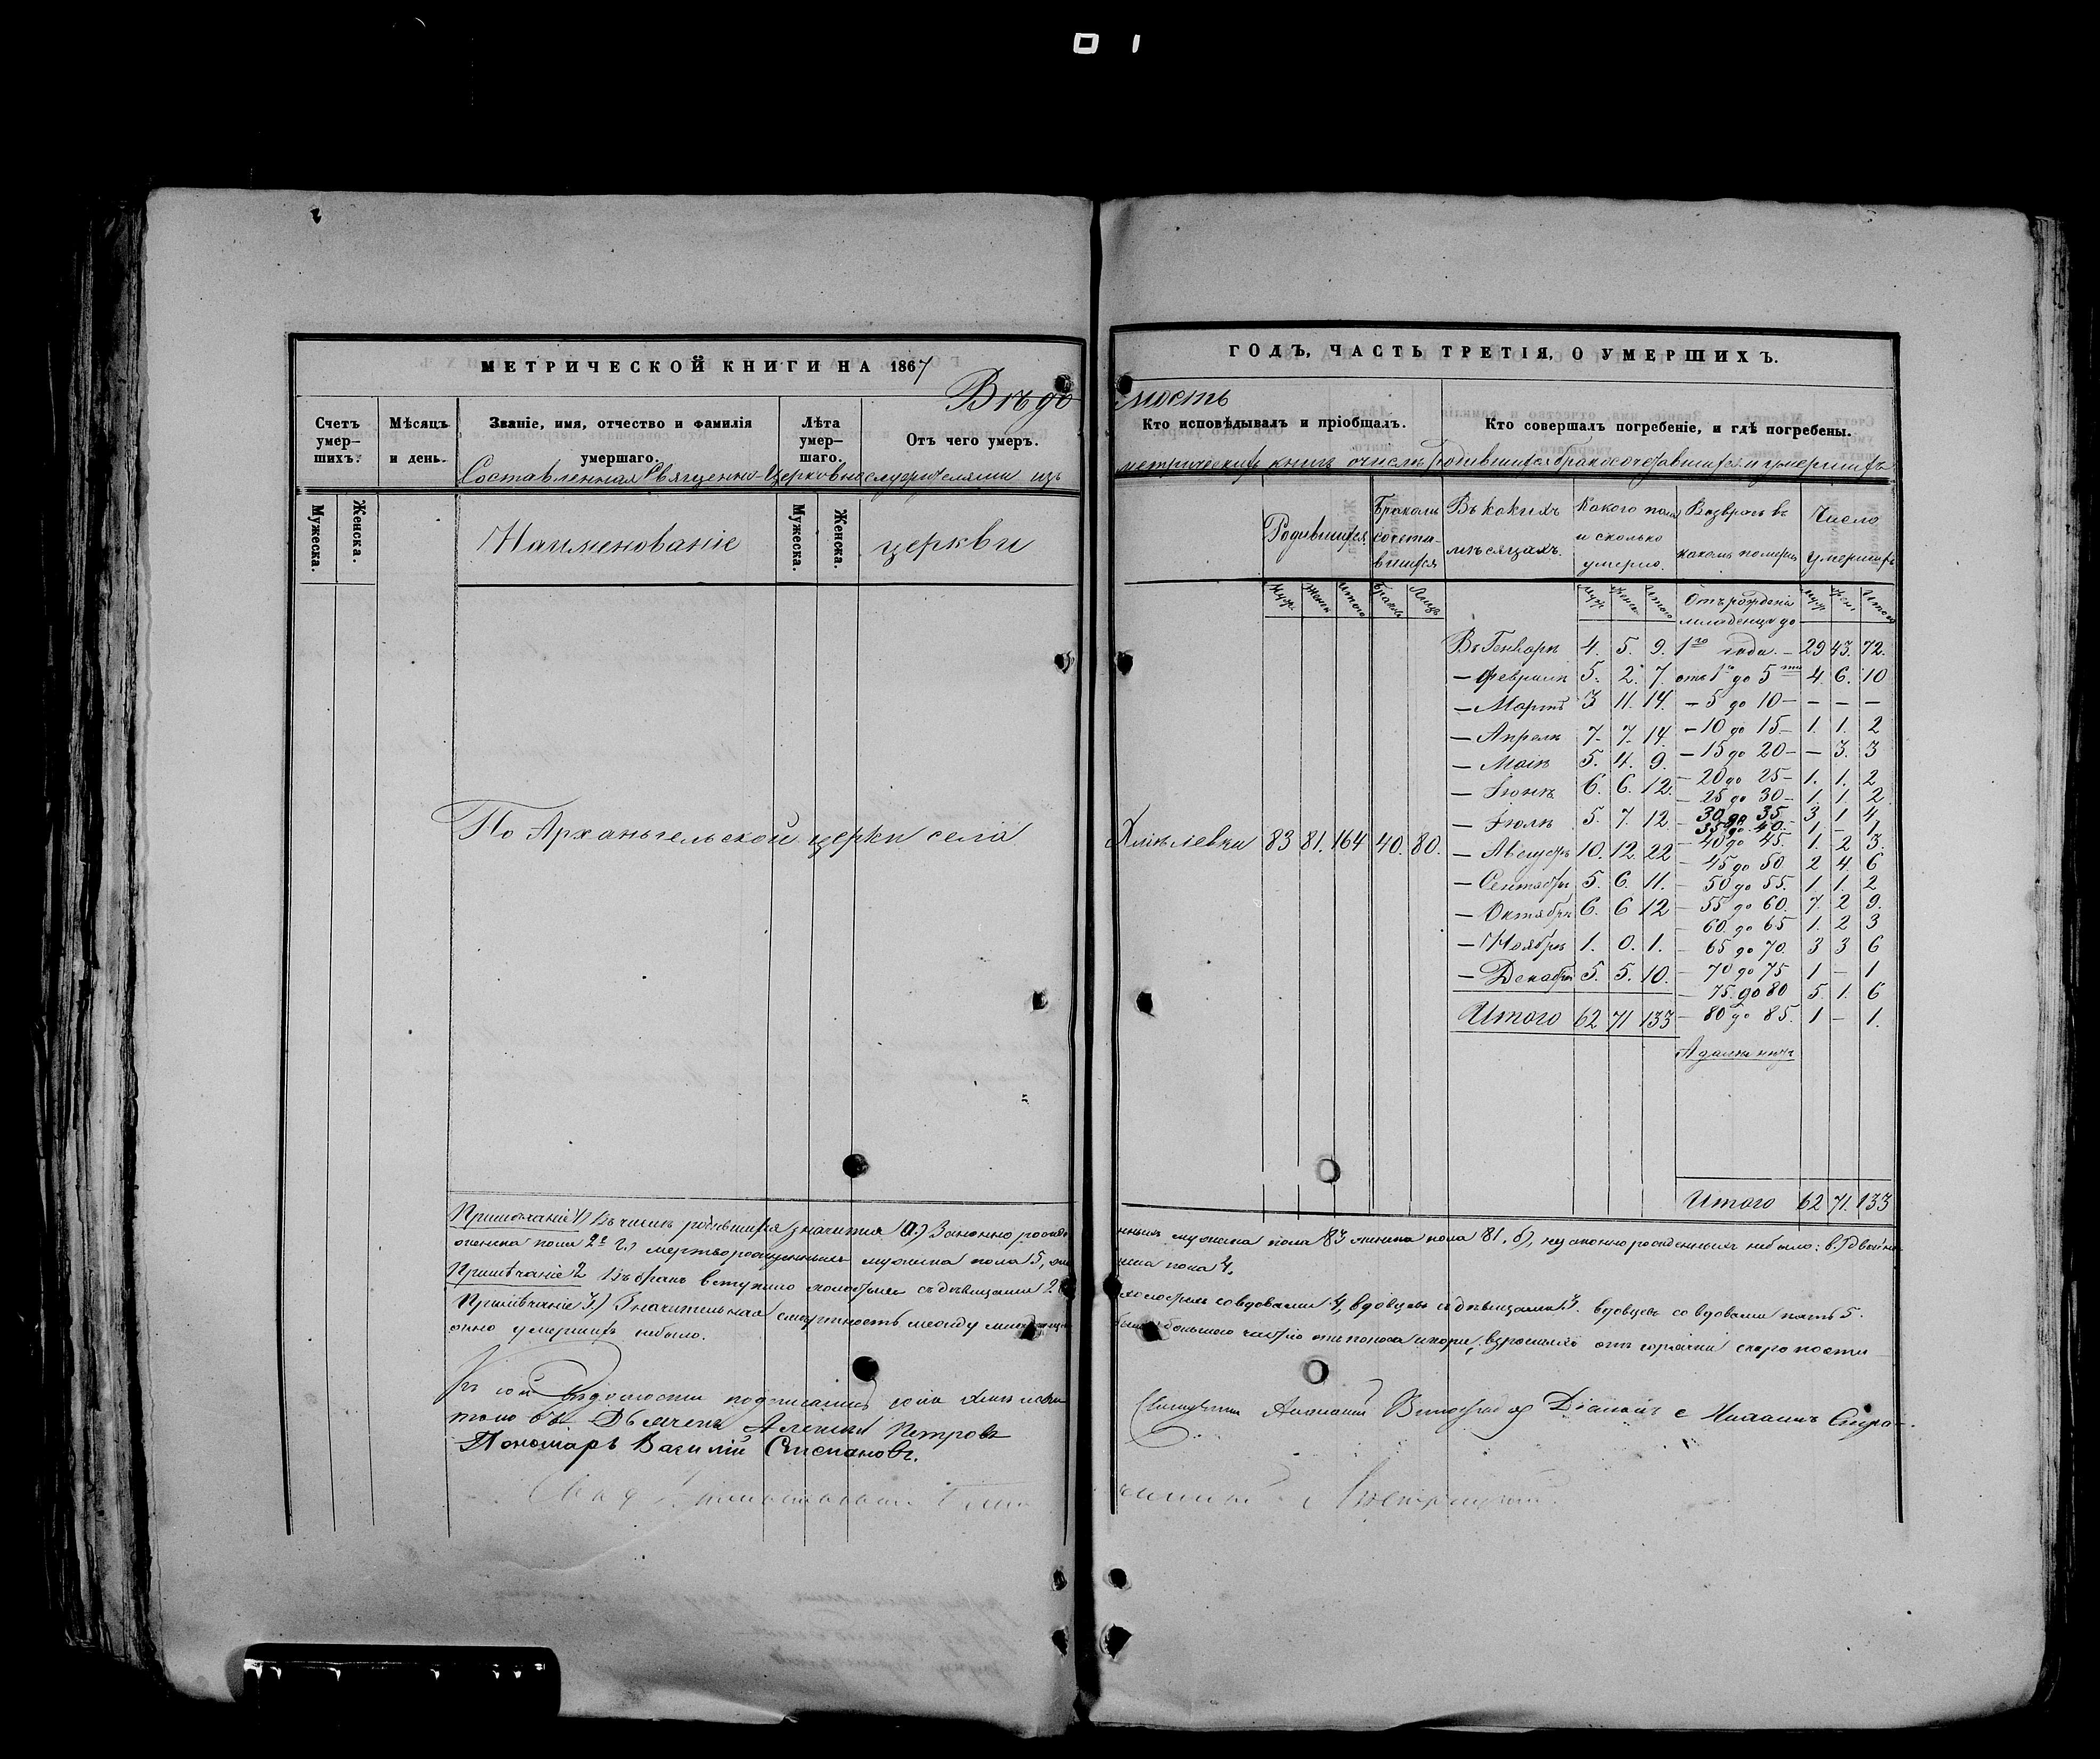 МЕТРИЧЕСКОЙ КНИГИ НА 1867
Вѣдо
Счетъ умер-шихъ.
Мѣсяцъ и день.
Званіе, имя, отчество и фамилія умершаго.
Лѣта умер-шаго.
Отъ чего умеръ.
Составленная Священно-Церковнослужителями изъ
Мужеска.
Женска.
Наименованіе
Мужеска.
Женска.
церкви
По Архангельской церкви села
Примѣчаніе 1) Въ числѣ родившихся значится (а.) Законно рожде
мертворожденныхъ мужска пола 5,
Примѣчаніе 2 Въ бракъ вступило холостыхъ съ дѣвицами 2
Примѣчаніе 3.) Значительная смертность между младенца
умершихъ небыло.
Къ сей Вѣдомости подписались села
Дьячекъ Алексѣй Петровъ
Пономарь Василій Степановъ.
ГОДЪ, ЧАСТЬ ТРЕТІЯ, О УМЕРШИХЪ.
мость
Кто исповѣдывалъ и пріобщалъ.
Кто совершалъ погребеніе, и гдѣ погребены.
метрическихъ книгъ о числѣ Родившихся бракосочетавшихся и умершихъ
Родившихся
Бракомъ сочета-вшихся
Въ какихъ мѣсяцахъ.
Какого пола и сколько умерло.
Возврасъ въ какомъ померъ
Число умершихъ
Муж. Женск Итого Браков Лицъ
Муж. Женск. Итого
Отъ рожденія младенца до
Муж. Жен. Итого
Въ Генваре 4. 5. 9. 1го года. – 29 43. 72.
– Февралѣ 5. 2. 7. отъ 1 до 5ти 4. 6. 10
– Мартѣ 3 11. 14. – 5 до 10 – – – –
– Апрелѣ 7. 7. 14. – 10 до 15 – 1. 1. 2
– Маіѣ 5. 4. 9. – 15 до 20 – – 3. 3
– Іюнѣ 6. 6. 12. – 20 до 25 – 1. 1. 2
– 25 до 30 – 1. 1. 2
– Іюлѣ 5. 7. 12 – 30 до 35 3 1 4
35 до 40. 1 – 1
83 81. 164 40. 80.
– Августѣ 10. 12. 22 – 40 до 45. 1. 2 3.
– 45 до 50 2 4 6
– Сентябрѣ 5. 6. 11. – 50 до 55. 1. 1. 2
– Октябрѣ 6. 6 12 – 55 до 60. 7. 2 9.
– 60 до 65 1. 2 3
– Ноябрѣ 1. 0. 1. – 65 до 70. 3 3 6
– Декабрѣ 5. 5. 10. – 70 до 75 1 – 1
– 75 до 80 5. 1. 6
Итого 62 71 133 – 80 до 85. 1 – 1.
Итого 62 71. 133
нныхъ мужска пола 83 женска пола 81. б), незаконнорожденныхъ небыло: в.) двойни
пола 4.
холостыхъ со вдовами 4, вдовцевъ съ дѣвицами 3. вдовцевъ со вдовами пять 5.
большею частію отъ поноса и кори, взрослыхъ отъ горячки скоропости
Священникъ